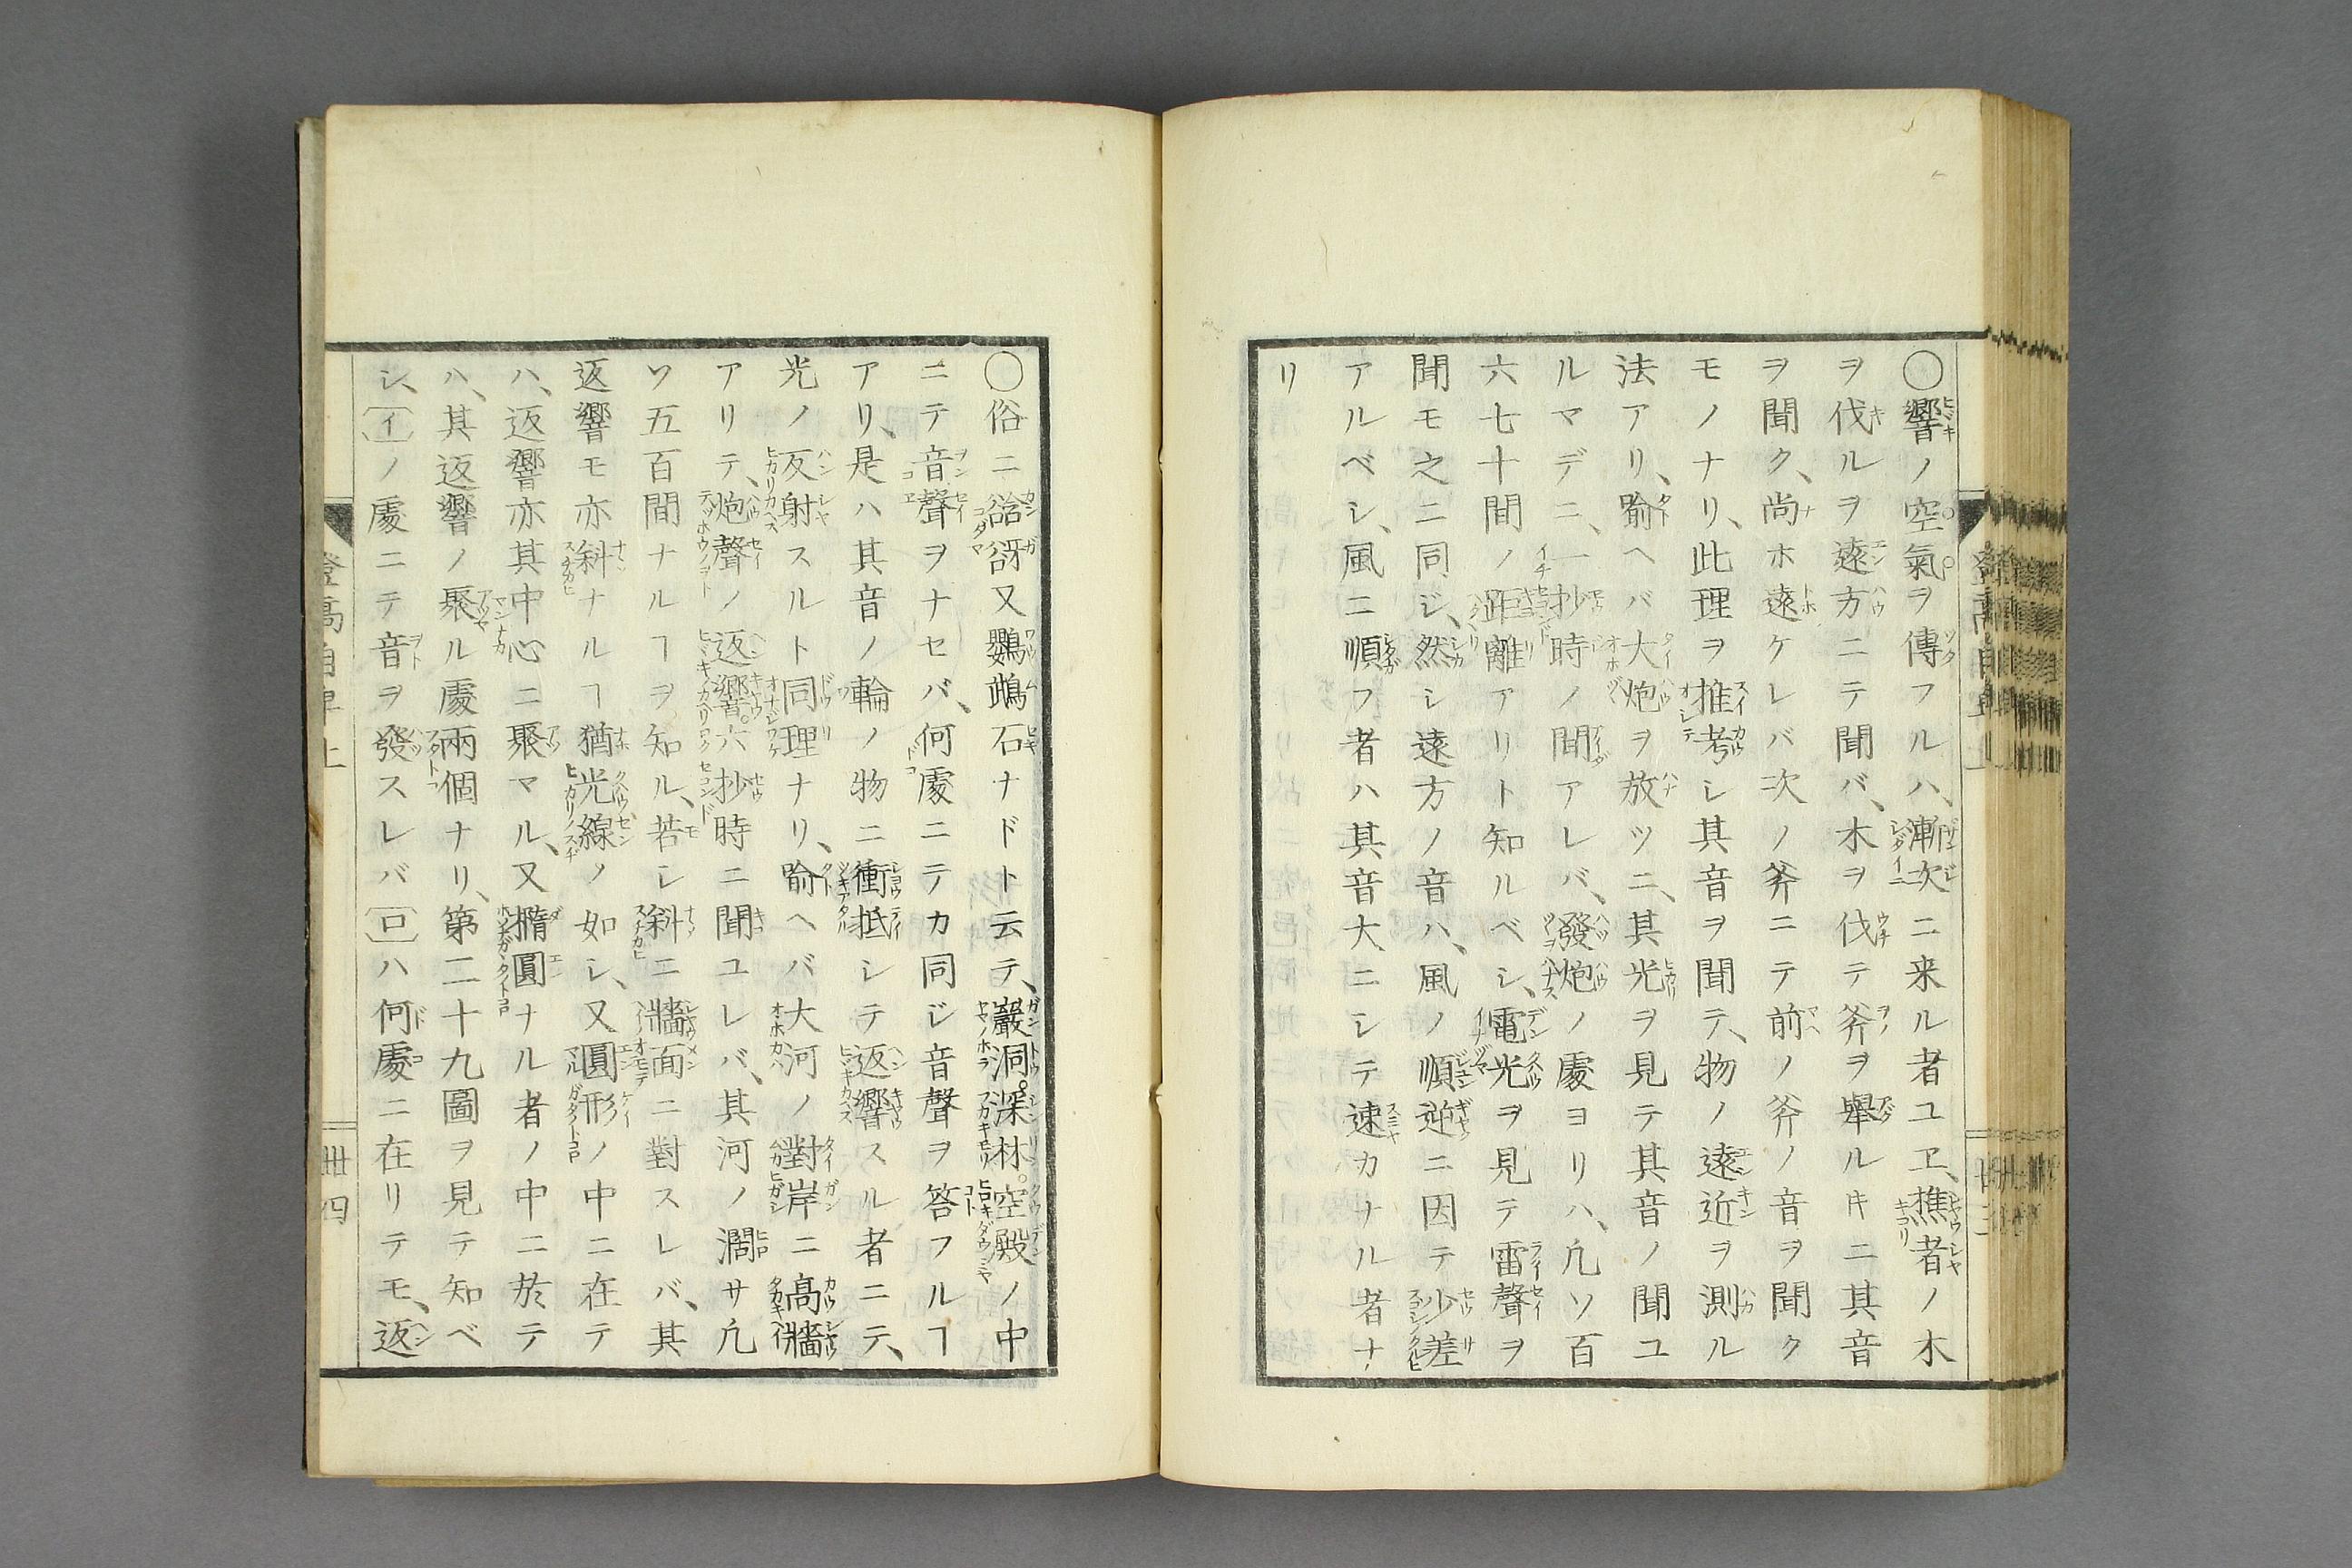 〇響ノ空氣ヲ傳フルハ、漸次ニ来ル者ユヱ、樵者ノ木
ヲ伐ルヲ遠方ニテ聞バ、木ヲ伐テ斧ヲ舉ルキニ其音
ヲ聞ク、尚ホ遠ケレバ次ノ斧ニテ前ノ斧ノ音ヲ聞ク
モノナリ、此理ヲ推考シ其音ヲ聞テ、物ノ遠近ヲ測ル
法アリ、喻ヘバ大炮ヲ放ツニ、其光ヲ見テ其音ノ聞ユ
ルマデニ、一抄時ノ間アレバ、發炮ノ處ヨリハ、凢ソ百
六七十間ノ距離アリト知ルベシ、電光ヲ見テ雷聲ヲ
聞モ之ニ同ジ、然シ遠方ノ音ハ、風ノ順逆ニ因テ少差
アルベシ、風ニ順フ者ハ其音大ニシテ速カナル者ナ
リ
〇俗ニ谽谺又鸚鵡石ナドト云テ、巖洞。深林。空殿ノ中
ニテ音聲ヲナセバ、何處ニテカ同ジ音聲ヲ答フルヿ
アリ、是ハ其音ノ輪ノ物ニ衝抵シテ返響スル者ニテ、
光ノ反射スルト同理ナリ、喻ヘバ大河ノ對岸ニ高牆
アリテ、炮聲ノ返響。六抄時ニ聞ユレバ、其河ノ濶サ凢
ソ五百間ナルヿヲ知ル、若シ斜ニ牆面ニ對スレバ、其
返響モ亦斜ナルヿ猶光線ノ如シ、又圓形ノ中ニ在テ
ハ、返響亦其中心ニ聚マル、又橢圓ナル者ノ中ニ於テ
ハ、其返響ノ聚ル處兩個ナリ、第二十九圖ヲ見テ知ベ
シ、〔イ〕ノ處ニテ音ヲ發スレバ〔ロ〕ハ何處ニ在リテモ、返
登高自卑 上
卌四